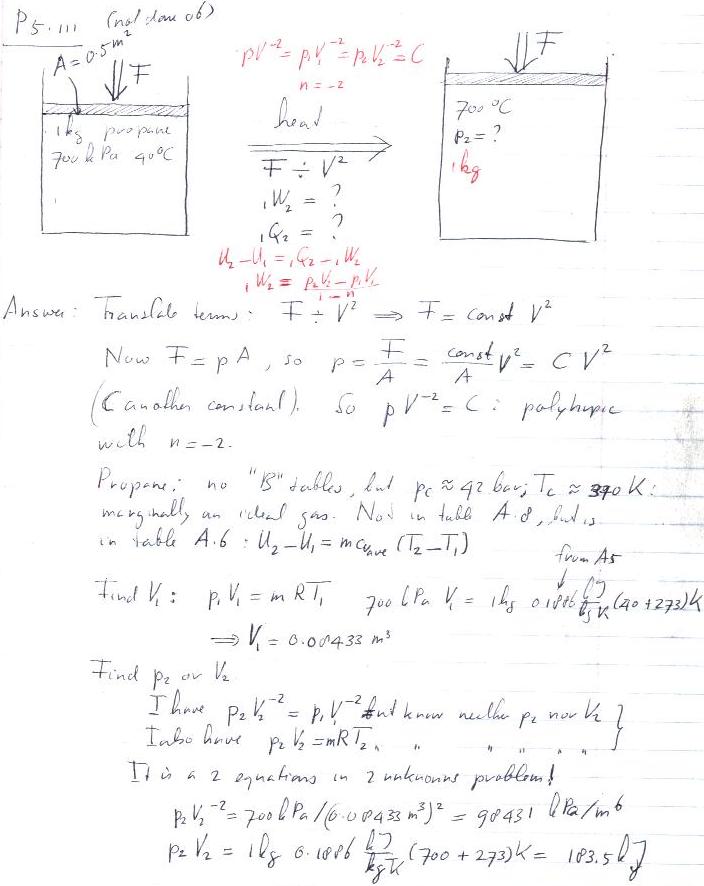 P5.111 (not done 06)
A = 0.5 m²
F
1 kg propane
700 kPa 40°C
pV⁻² = p₁V₁⁻² = p₂V₂⁻² = C
n = -2
heat
F ÷ V²
₁W₂ = ?
₁Q₂ = ?
U₂ - U₁ = ₁Q₂ - ₁W₂
₁W₂ = (p₂V₂ - p₁V₁)/(1 - n)
F
700°C
p₂ = ?
1 kg
Answer: Translate terms: F ÷ V² ⇒ F = const V²
Now F = pA, so p = F/A = const/A V² = C V²
(C another constant). So pV⁻² = C: polytropic
with n = -2.
Propane: no "B" tables, but pc ≈ 42 bar; Tc ≈ 370 K:
marginally an ideal gas. Not in table A.8, but is
in table A.6: U₂ - U₁ = m cv ave (T₂ - T₁)
from A5
Find V₁: p₁V₁ = m R T₁ 700 kPa V₁ = 1 kg 0.1886 kJ/kg K (40 + 273) K
⇒ V₁ = 0.08433 m³
Find p₂ or V₂
I have p₂V₂⁻² = p₁V₁⁻² but know neither p₂ nor V₂ }
I also have p₂V₂ = mRT₂, " " " " " " }
It is a 2 equations in 2 unknowns problem!
p₂V₂⁻² = 700 kPa / (0.08433 m³)² = 98431 kPa/m⁶
p₂V₂ = 1 kg 0.1886 kJ/kg K (700 + 273) K = 183.5 kJ